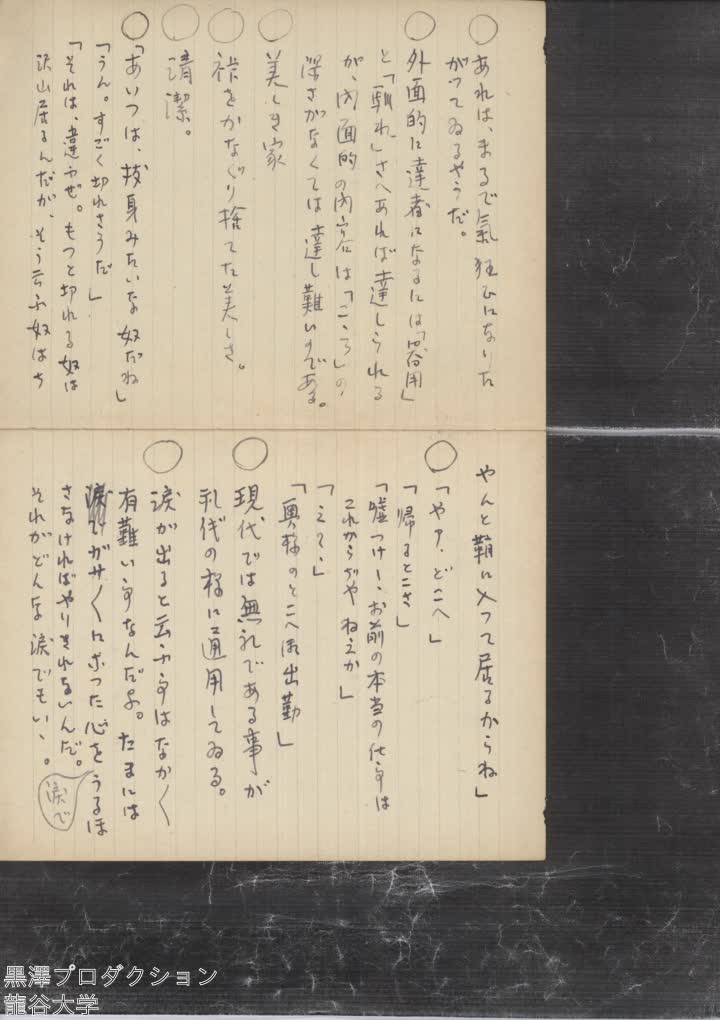 ○ あれは、まるで氣狂ひになりた
がつてゐるやうだ。
○ 外面的に達者になるには「器用」
と「馴れ」さへあれば達しられる
が、内面的の内容は「こゝろ」の、
深さがなくては達し難いのである。
○ 美しき家
○ 裃をかなぐり捨てた美しさ。
○ 清潔。
○ 「あいつは、抜身みたいな奴だね」
「うん。すごく切れさうだ」
「それは、違ふぜ。もつと切れる奴は
沢山居るんだが、そう云ふ奴はち
やんと鞘に入つて居るからね」
○ 「やア、どこへ」
「帰るとこさ」
「嘘つけー、お前の本当の仕事は
これからぢやねえか」
「えゝ」
「奥様のとこへ御出勤」
○ 現代では無礼である事が
礼儀の様に通用してゐる。
○ 涙が出ると云ふ事はなかなか
有難い事なんだよ。たまには
がサガサになつた心を涙でうるほ
さなければやりきれないんだ。
それがどんな涙でもいゝ。
黒澤プロダクション
龍谷大学